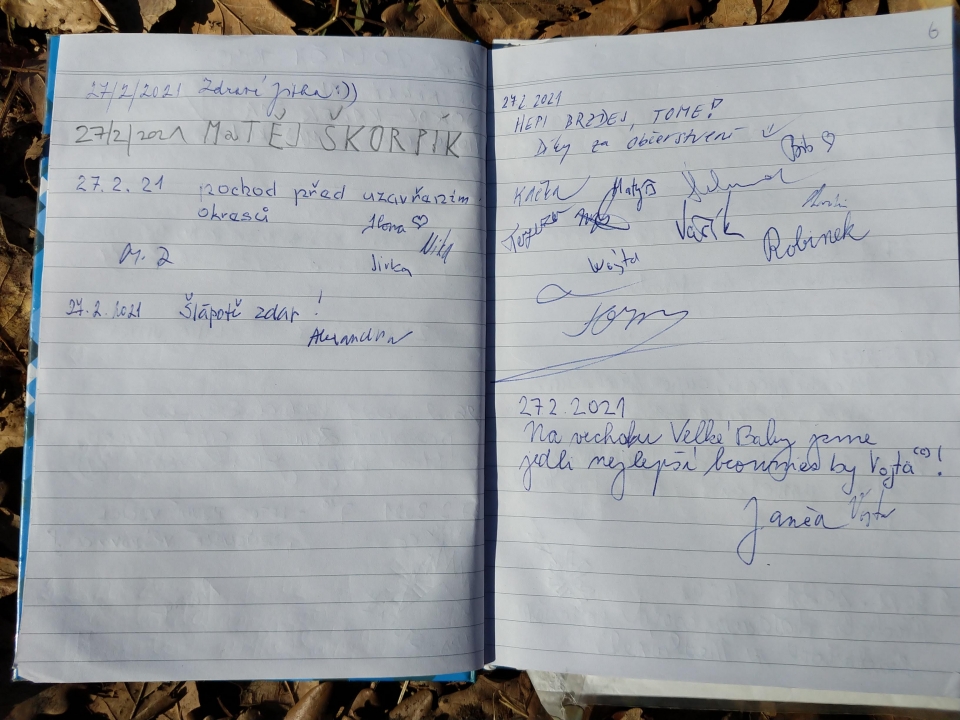 27/2/2021 Zdraví Jitka :))
27/2/2021 MaTĚJ ŠKORPÍK
27.2.21 pochod před uzavřením
okresů
Ilona ♡
Nikd
Jirka
M. Z
27.2.2021 Šlápotě zdar!
Alexandra
6
27.2.2021
HEPI BRZDEJ, TOME!
Díky za občerstvení
Bab ♡
Kačka Matyáš
Vašík
Robinek
Wojta
Tom
27.2.2021
Na vrcholu Velké Baby jsme
jedli nejlepší brownies by Vojta!
Janča Vojta